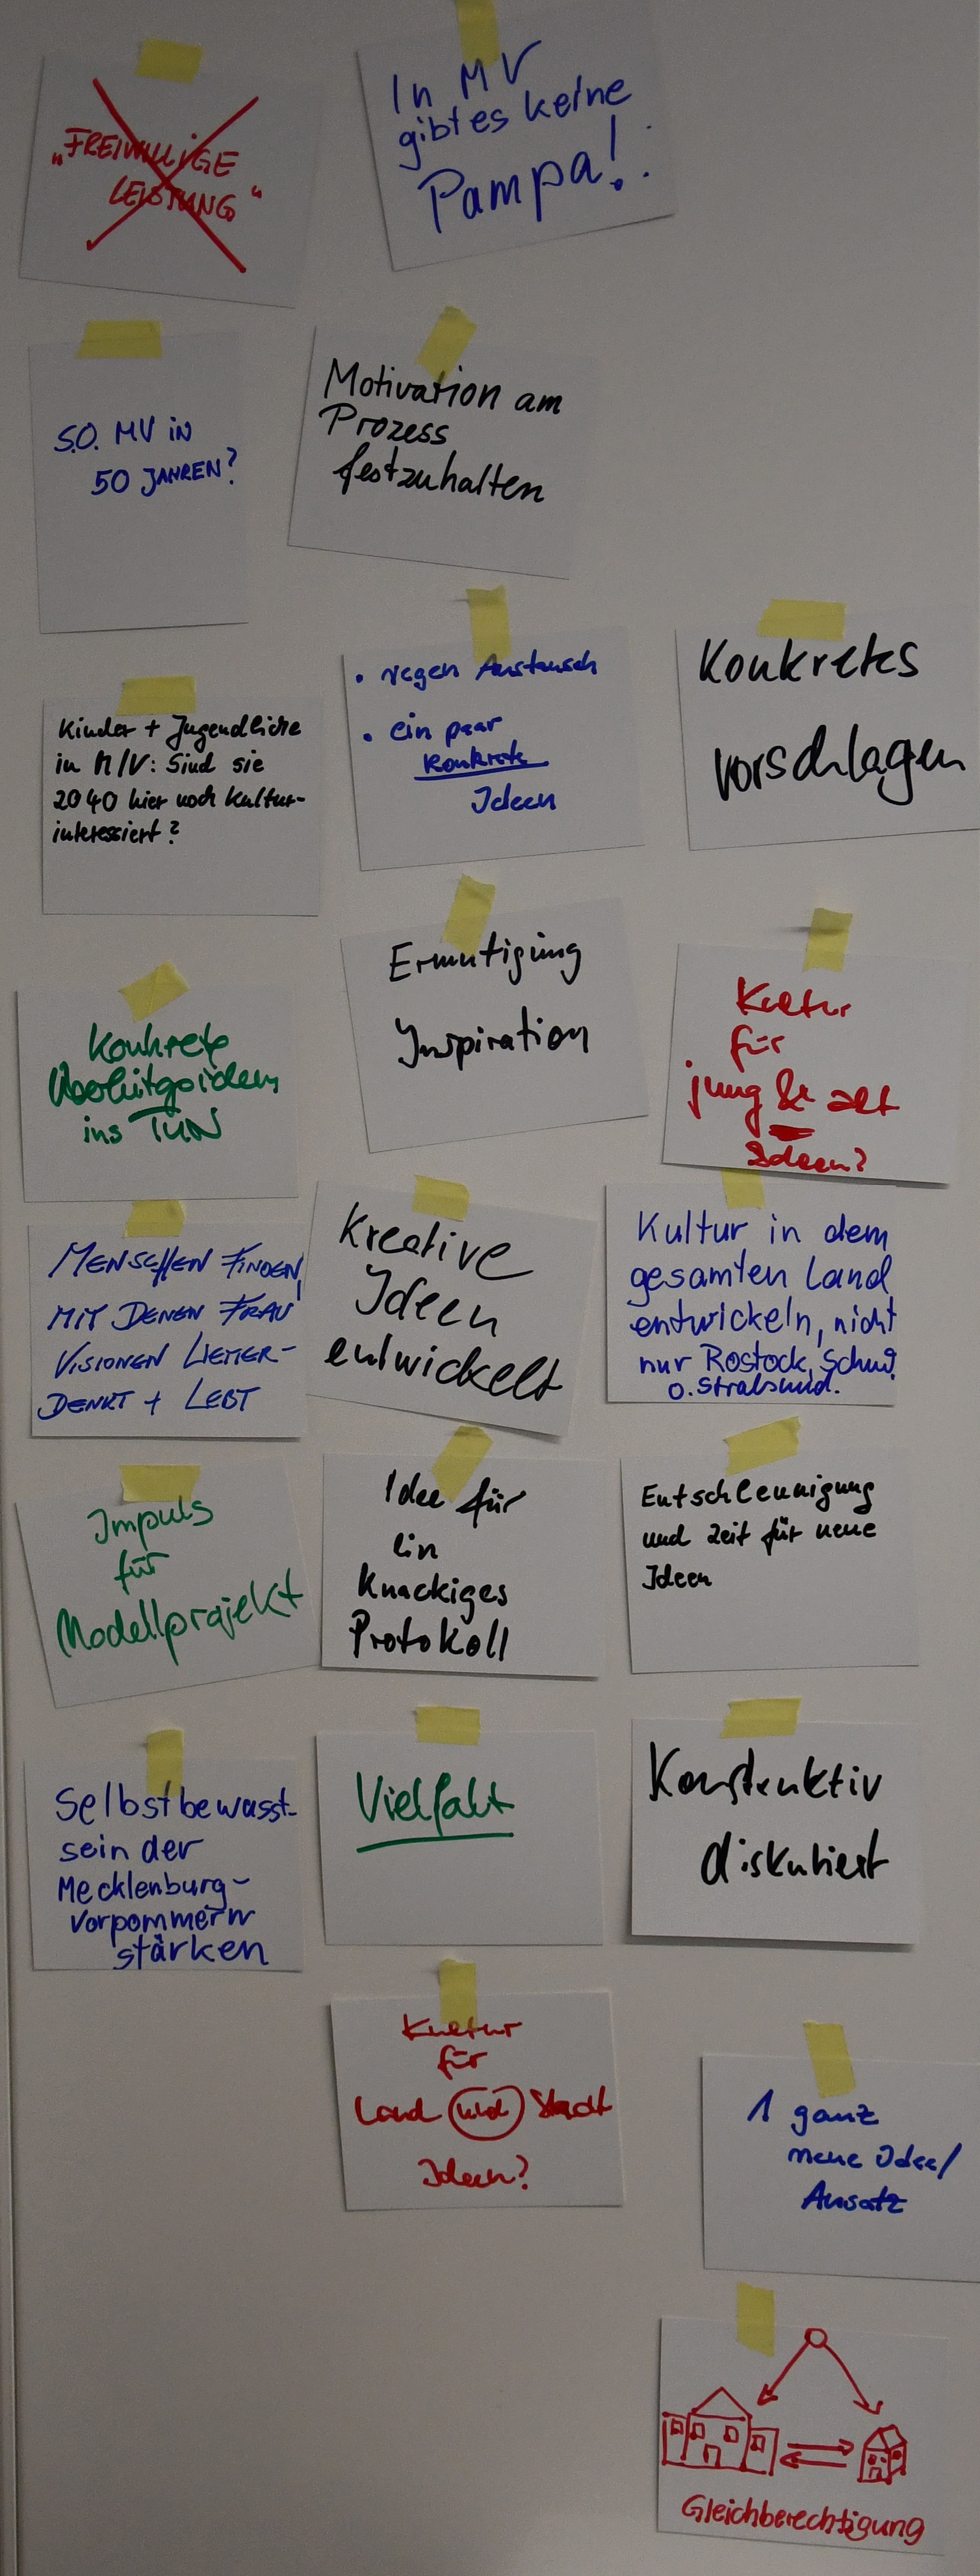 „FREIWILLIGE
LEISTUNG"
In MV
gibt es keine
Pampa!
S.O. MV IN
50 JAHREN?
Motivation am
Prozess
festzuhalten
Kinder + Jugendliche
in M/V: Sind sie
2040 hier noch Kultur-
interessiert?
• regen Austausch
• ein paar
konkrete
Ideen
Konkretes
vorschlagen
Konkrete
ins TUN
Ermutigung
Inspiration
Kultur
für
jung & alt
Ideen?
MENSCHEN FINDEN,
MIT DENEN FRAU
VISIONEN WEITER-
DENKT + LEBT
Kreative
Ideen
entwickelt
Kultur in dem
gesamten Land
entwickeln, nicht
nur Rostock, Schw.
o. Stralsund.
Impuls
für
Modellprojekt
Idee für
ein
knackiges
Protokoll
Entschleunigung
und Zeit für neue
Ideen
Selbstbewusst-
sein der
Mecklenburg-
Vorpommern
stärken
Vielfalt
Konstruktiv
diskutiert
Kultur
für
Land und Stadt
Ideen?
1 ganz
neue Idee/
Ansatz
Gleichberechtigung